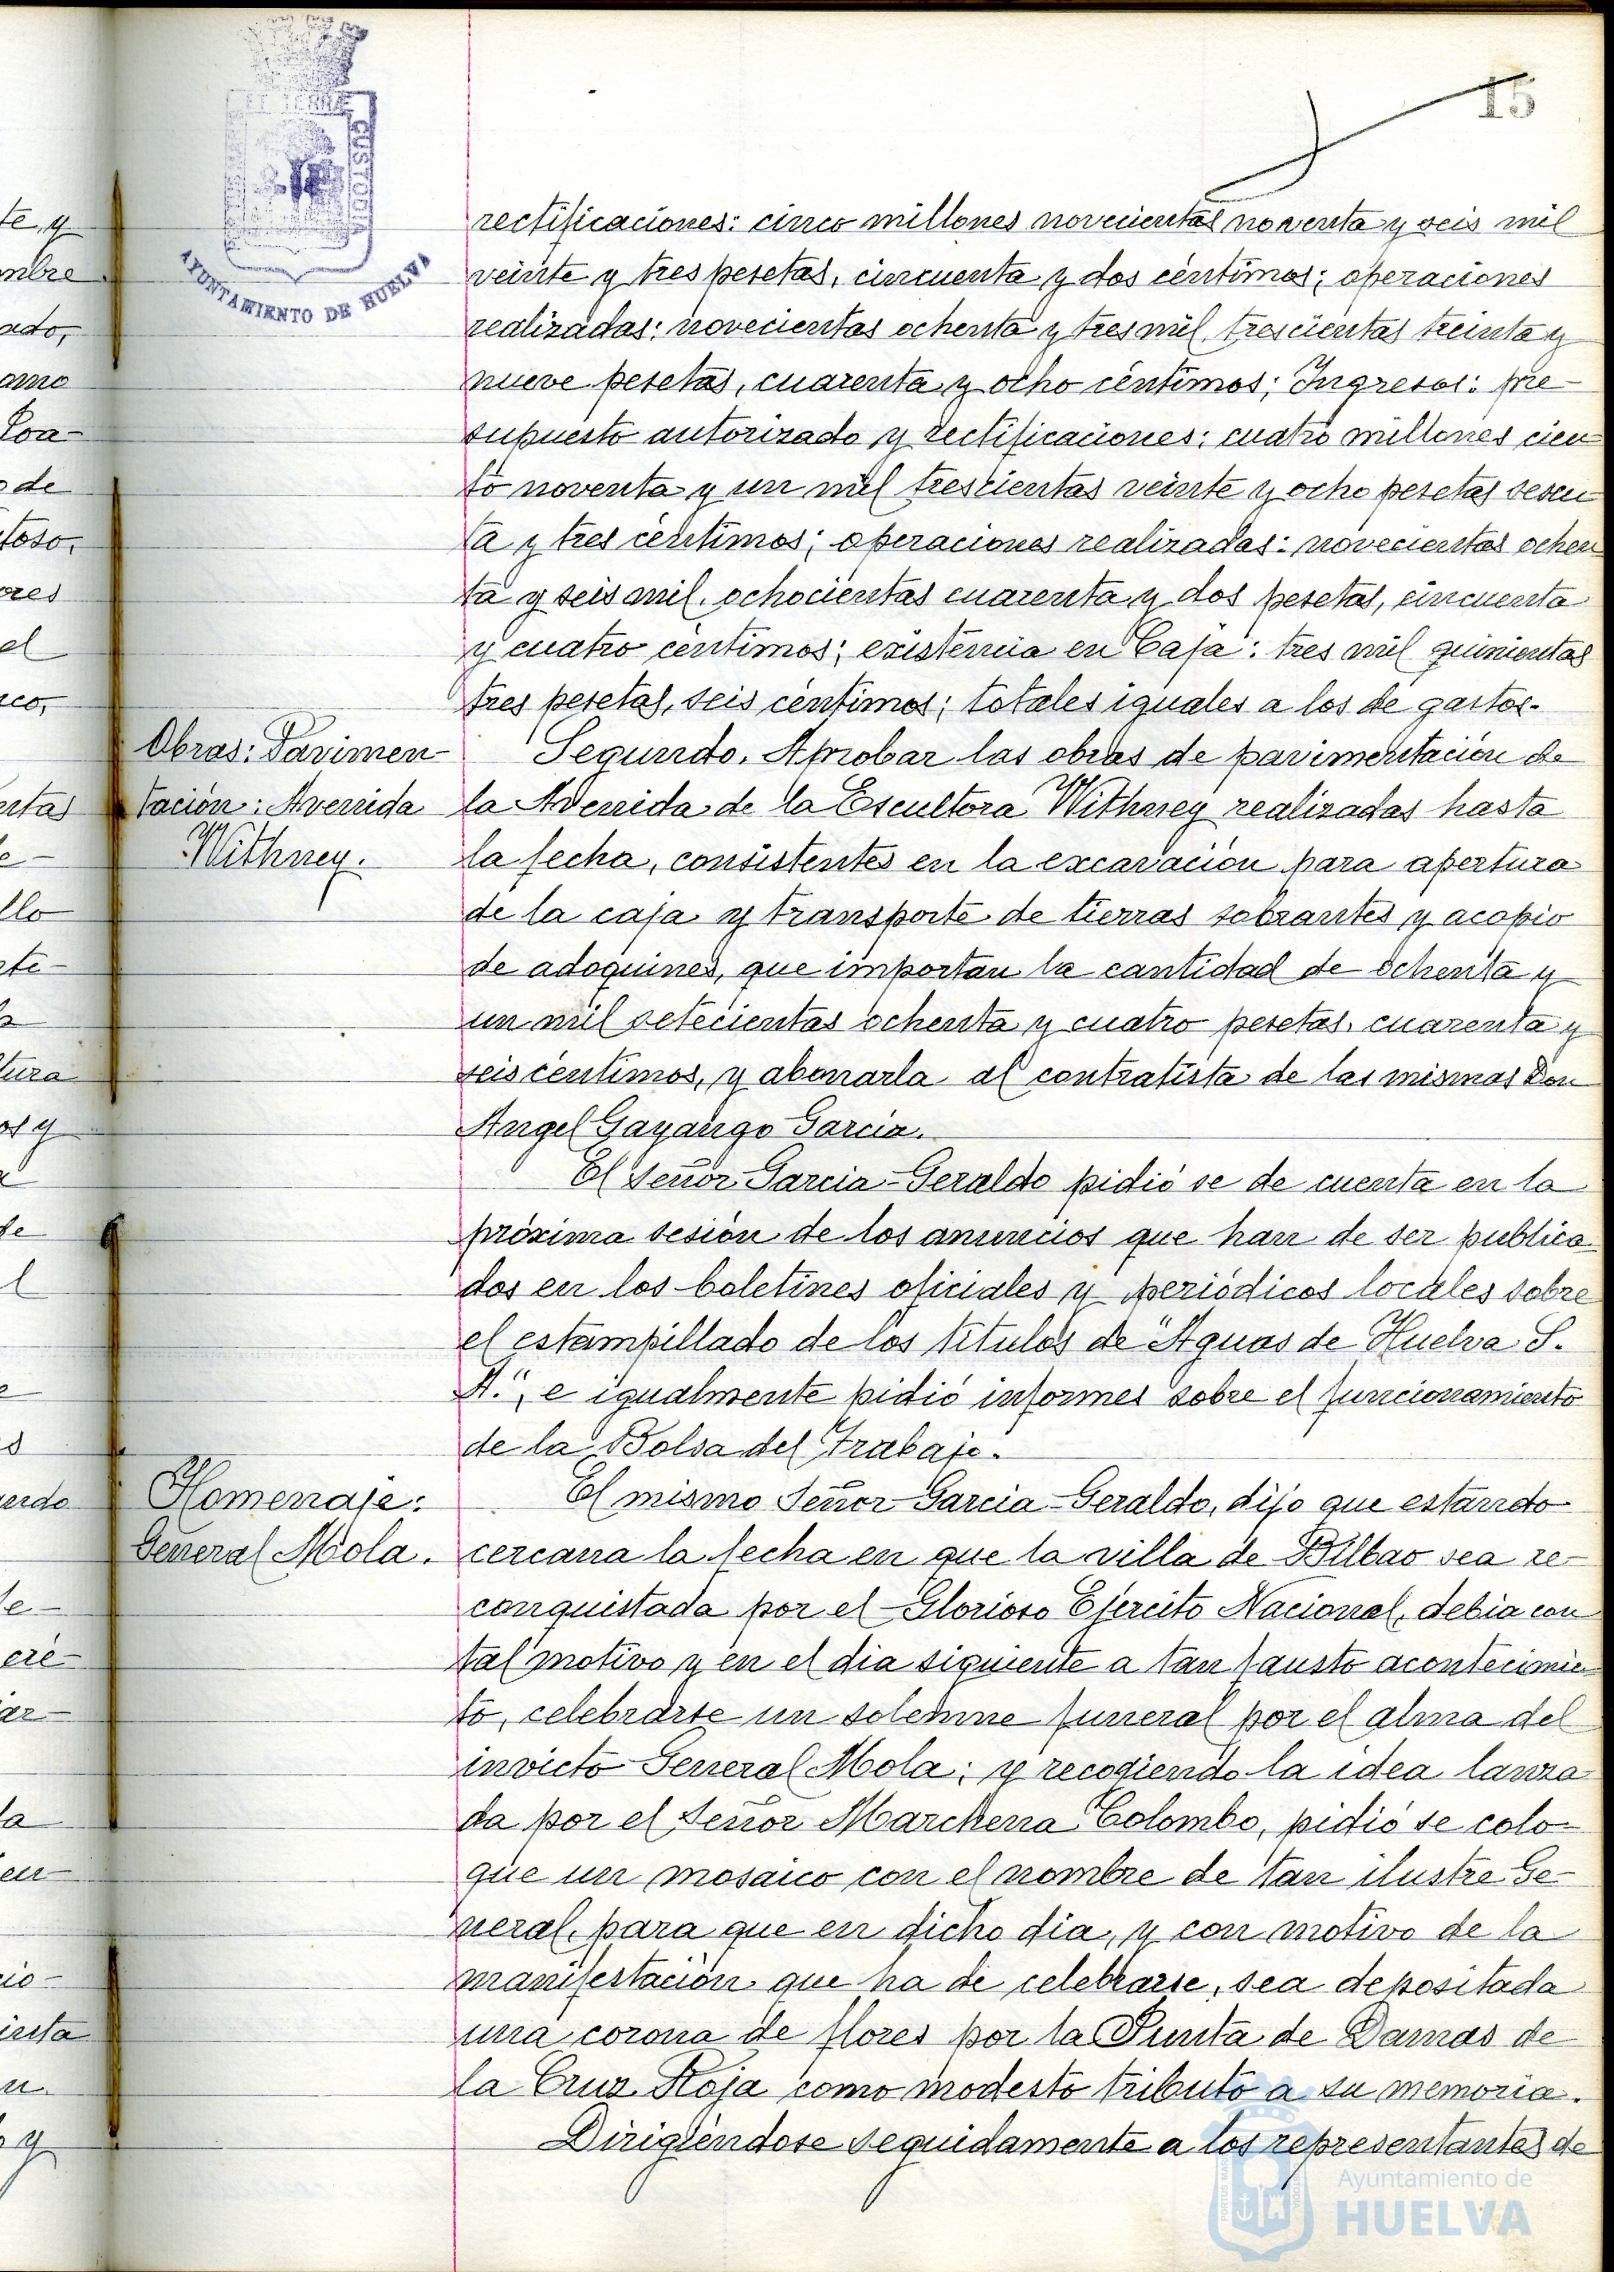 15
ET TERRÆ
CUSTODIA
AYUNTAMIENTO DE HUELVA
te, y
mbre
ado,
omo
Loa-
o de
toso,
ores
el
ico,
rectificaciones: cinco millones novecientas noventa y seis mil
veinte y tres pesetas, cincuenta y dos céntimos; operaciones
realizadas: novecientas ochenta y tres mil, trescientas treinta y
nueve pesetas, cuarenta y ocho céntimos; Ingresos: pre-
supuesto autorizado y rectificaciones: cuatro millones cien
to noventa y un mil trescientas veinte y ocho pesetas sesen
ta y tres céntimos; operaciones realizadas: novecientas ochen
ta y seis mil, ochocientas cuarenta y dos pesetas, cincuenta
y cuatro céntimos; existencia en Caja: tres mil quinientas
tres pesetas, seis céntimos; totales iguales a los de gastos.-
Obras: Pavimen-
tación: Avenida
Withney.
Segundo. Aprobar las obras de pavimentación de
la Avenida de la Escultora Withney realizadas hasta
la fecha, consistentes en la excavación para apertura
de la caja y transporte de tierras sobrantes y acopio
de adoquines, que importan la cantidad de ochenta y
un mil setecientas ochenta y cuatro pesetas, cuarenta y
seis céntimos, y abonarla al contratista de las mismas Don
Angel Gayango Garcia.
El Señor Garcia-Geraldo pidió se de cuenta en la
próxima sesión de los anuncios que han de ser publica-
dos en los boletines oficiales y periódicos locales sobre
el estampillado de los títulos de "Aguas de Huelva S.
A.", e igualmente pidió informes sobre el funcionamiento
de la Bolsa del Trabajo.
Homenaje:
General Mola.
El mismo Señor Garcia-Geraldo, dijo que estando
cercana la fecha en que la villa de Bilbao sea re-
conquistada por el Glorioso Ejército Nacional, debia con
tal motivo y en el dia siguiente a tan fausto acontecimien
to, celebrarse un solemne funeral por el alma del
invicto General Mola; y recogiendo la idea lanza
da por el Señor Marchena Colombo, pidió se colo-
que un mosaico con el nombre de tan ilustre Ge-
neral, para que en dicho dia, y con motivo de la
manifestación que ha de celebrarse, sea depositada
una corona de flores por la Junta de Damas de
la Cruz Roja como modesto tributo a su memoria.
Dirigiéndose seguidamente a los representantes de
Ayuntamiento de
HUELVA